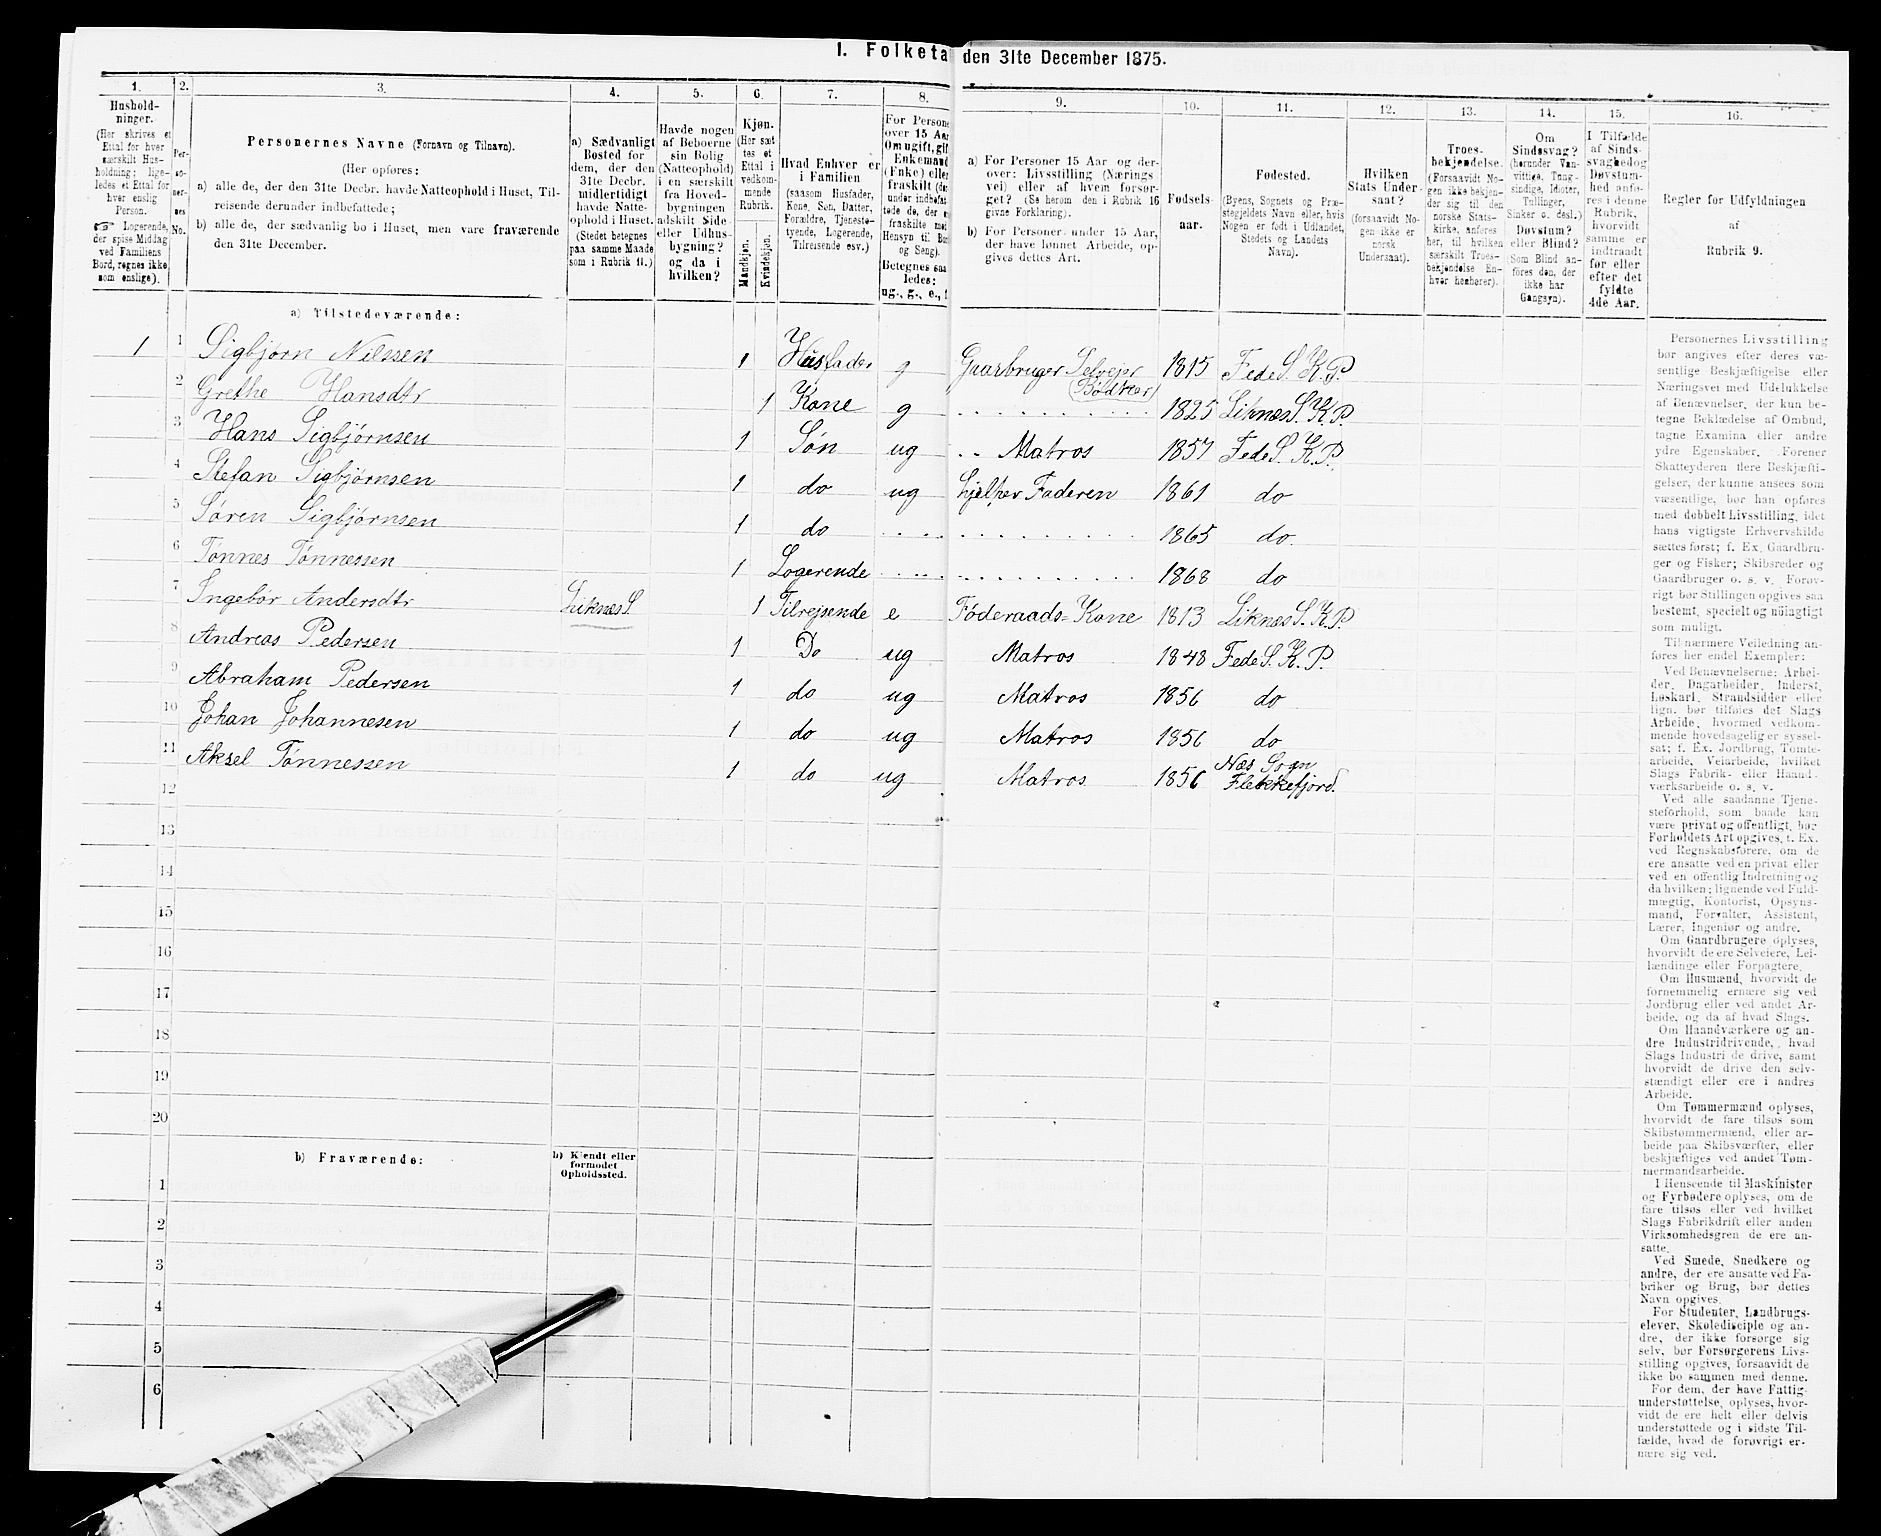 I. Folketa den 31te December 1875.
1. 2. 3. 4. 5. 6. 7. 8. 9. 10. 11. 12. 13. 14. 15. 16.
Hushold-
ninger.
(Her skrives et
Ettal for hver
særskilt Hus-
holdning; lige-
ledes et Ettal for
hver enslig
Person.
☞ Logerende,
der spise Middag
ved Familiens
Bord, regnes ikke
som enslige).
Per-
so-
ner-
nes
No.
Personernes Navne (Fornavn og Tilnavn).
(Her opføres:
a) alle de, der den 31te Decbr. havde Natteophold i Huset, Til-
reisende derunder indbefattede;
b) alle de, der sædvanlig bo i Huset, men vare fraværende
den 31te December.
a) Sædvanligt
Bosted for
dem, der den
31te Decbr.
midlertidigt
havde Natte-
ophold i Huset.
(Stedet betegnes
paa samme Maade
som i Rubrik 11.)
Havde nogen
af Beboerne
sin Bolig
(Natteophold)
i en særskilt
fra Hoved-
bygningen
adskilt Side-
eller Udhus-
bygning?
og da i
hvilken?
Kjøn.
(Her sæt
tes et
Ettal i
vedkom-
mende
Rubrik.
Mandkjøn.
Kvindekjøn.
Hvad Enhver er
i Familien
(saasom Husfader,
Kone, Søn, Datter,
Forældre, Tjeneste-
tyende, Logerende,
Tilreisende osv.)
For Persone
over 15 Aar
Om ugift, gif
Enkemand
(Enke) elle
fraskilt (de
under indbefat
tede de, der e
fraskilte me
Hensyn til Bo
og Seng).
Betegnes saa
ledes:
ug., g., e., f
a) For Personer 15 Aar og der-
over: Livsstilling (Nærings
vei) eller af hvem forsør-
get? (Se herom den i Rubrik 16
givne Forklaring).
b) For Personer under 15 Aar,
der have lønnet Arbeide, op-
gives dettes Art.
Fødsels-
aar.
Fødested.
(Byens, Sognets og Præ-
stegjeldets Navn eller, hvis
Nogen er født i Udlandet,
Stedets og Landets
Navn).
Hvilken
Stats Under-
saat?
(forsaavidt No-
gen ikke er
norsk
Undersaat).
Troes-
bekjendelse.
(Forsaavidt No-
gen ikke bekjen-
der sig til den
norske Stats-
kirke, anføres
her, til hvilken
særskilt Troes-
bekjendelse En-
hver henhører).
Om
Sindssvag?
(herunder Van-
vittige, Tung-
sindige, Idioter,
Tullinger,
Sinker o. desl.)
Døvstum?
eller Blind?
(Som Blind an-
føres den, der
ikke har
Gangsyn).
I Tilfælde
af Sinds-
svaghed og
Døvstum-
hed anfø-
res i denne
Rubrik,
hvorvidt
samme er
indtraadt
før eller
efter det
fyldte
4de Aar.
Regler for Udfyldningen
af
Rubrik 9.
a) Tilstedeværende:
1 1 Sigbjørn Nilssen 1 Husfader g Gaarbruger Selvejer (Bødtker) 1815 Fede S. K. P.
2 Grethe Hansdtr 1 Kone g 1825 Liknes S. K. P.
3 Hans Sigbjørnsen 1 Søn ug Matros 1857 Fede S. K. P.
4 Stefan Sigbjørnsen 1 do ug hjelper Faderen 1861 do
5 Søren Sigbjørnsen 1 do 1865 do.
6 Tønnes Tønnessen 1 Logerende 1868 do
7 Ingebør Andersdtr Liknes S 1 Tilrejsende e Føderaads-Kone 1813 Liknes S. K. P.
8 Andreas Pedersen 1 Do ug Matros 1848 Fede S. K. P.
9 Abraham Pedersen 1 do ug Matros 1856 do
10 Johan Johannesen 1 do ug Matros 1856 do
11 Aksel Tønnessen 1 do ug Matros 1856 Næs Sogn Flekkefjord.
12
13
14
15
16
17
18
19
20
b) Fraværende:
b) Kjendt eller
formodet
Opholdssted.
1
2
3
4
5
6
Personernes Livsstilling
bør angives efter deres væ-
sentlige Beskjæftigelse eller
Næringsvei med Udelukkelse
af Benævnelser, der kun be-
tegne Beklædelse af Ombud,
tagne Examina eller andre
ydre Egenskaber. Forener
Skatteyderen flere Beskjæfti-
gelser, der kunne ansees som
væsentlige, bør han opføres
med dobbelt Livsstilling, idet
hans vigtigste Erhvervskilde
sættes først; f. Ex. Gaardbru-
ger og Fisker; Skibsreder og
Gaardbruger o. s. v. Forøv-
rigt bør Stillingen opgives saa
bestemt, specielt og nøiagtigt
som muligt.
Til nærmere Veiledning an-
føres her endel Exempler:
Ved Benævnelserne: Arbei-
der, Dagarbeider, Inderst,
Løskarl, Strandsidder eller
lign. bør tilføies det Slags
Arbeide, hvormed vedkom-
mende hovedsagelig er syssel-
sat; f. Ex. Jordbrug, Tomte-
arbeide, Veiarbeide, hvilket
Slags Fabrik- eller Haand-
værksarbeide o. s. v.
Ved alle saadanne Tjene-
steforhold, som baade kan
være privat og offentligt, bør
Forholdets Art opgives, f. Ex.
ved Regnskabsførere, om de
ere ansatte ved en privat eller
ved en offentlig Indretning og
da hvilken; lignende ved Fuld-
mægtig, Kontorist, Opsyns-
mand, Forvalter, Assistent,
Lærer, Ingeniør og andre.
Om Gaardbrugere oplyses,
hvorvidt de ere Selveiere, Lei-
lændinge eller Forpagtere.
Om Husmænd, hvorvidt de
fornemmelig ernære sig ved
Jordbrug eller ved andet Ar-
beide, og da af hvad Slags.
Om Haandværkere og an-
dre Industridrivende, hvad
Slags Industri de drive, samt
hvorvidt de drive den selv-
stændigt eller ere i andres
Arbeide.
Om Tømmermænd oplyses,
hvorvidt de fare tilsøs som
Skibstømmermænd, eller ar-
beide paa Skibsværfter, eller
beskjæftiges ved andet Tøm-
mermandsarbeide.
I Henseende til Maskinister
og Fyrbødere oplyses, om de
fare tilsøs eller ved hvilket
Slags Fabrikdrift eller anden
Virksomhedsgren de ere an-
satte.
Ved Smede, Snedkere og
andre, der ere ansatte ved Fa-
briker og Brug, bør dettes
Navn opgives.
For Studenter, Landbrugs-
elever, Skoledisciple og an-
dre, der ikke forsørge sig
selv, bør Forsørgerens Livs-
stilling opgives, forsaavidt de
ikke bo sammen med denne.
For dem, der have Fattig-
understøttelse, oplyses, hvor-
vidt de ere helt eller delvis
understøttede og i sidste Til-
fælde, hvad de forøvrigt er-
nære sig ved.